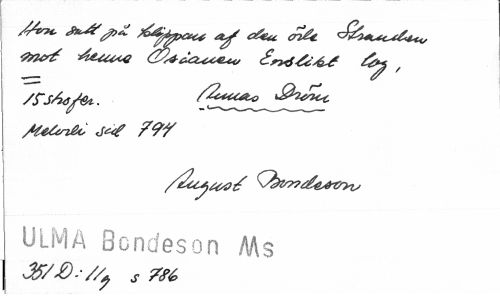 Hon satt på klippan af den öde Stranden
mot henne Osianen Enslikt log,
=
15 strofer. Annas Dröm
Melodi sid 794
August Bondeson
ULMA Bondeson Ms
351 D:11q s 786